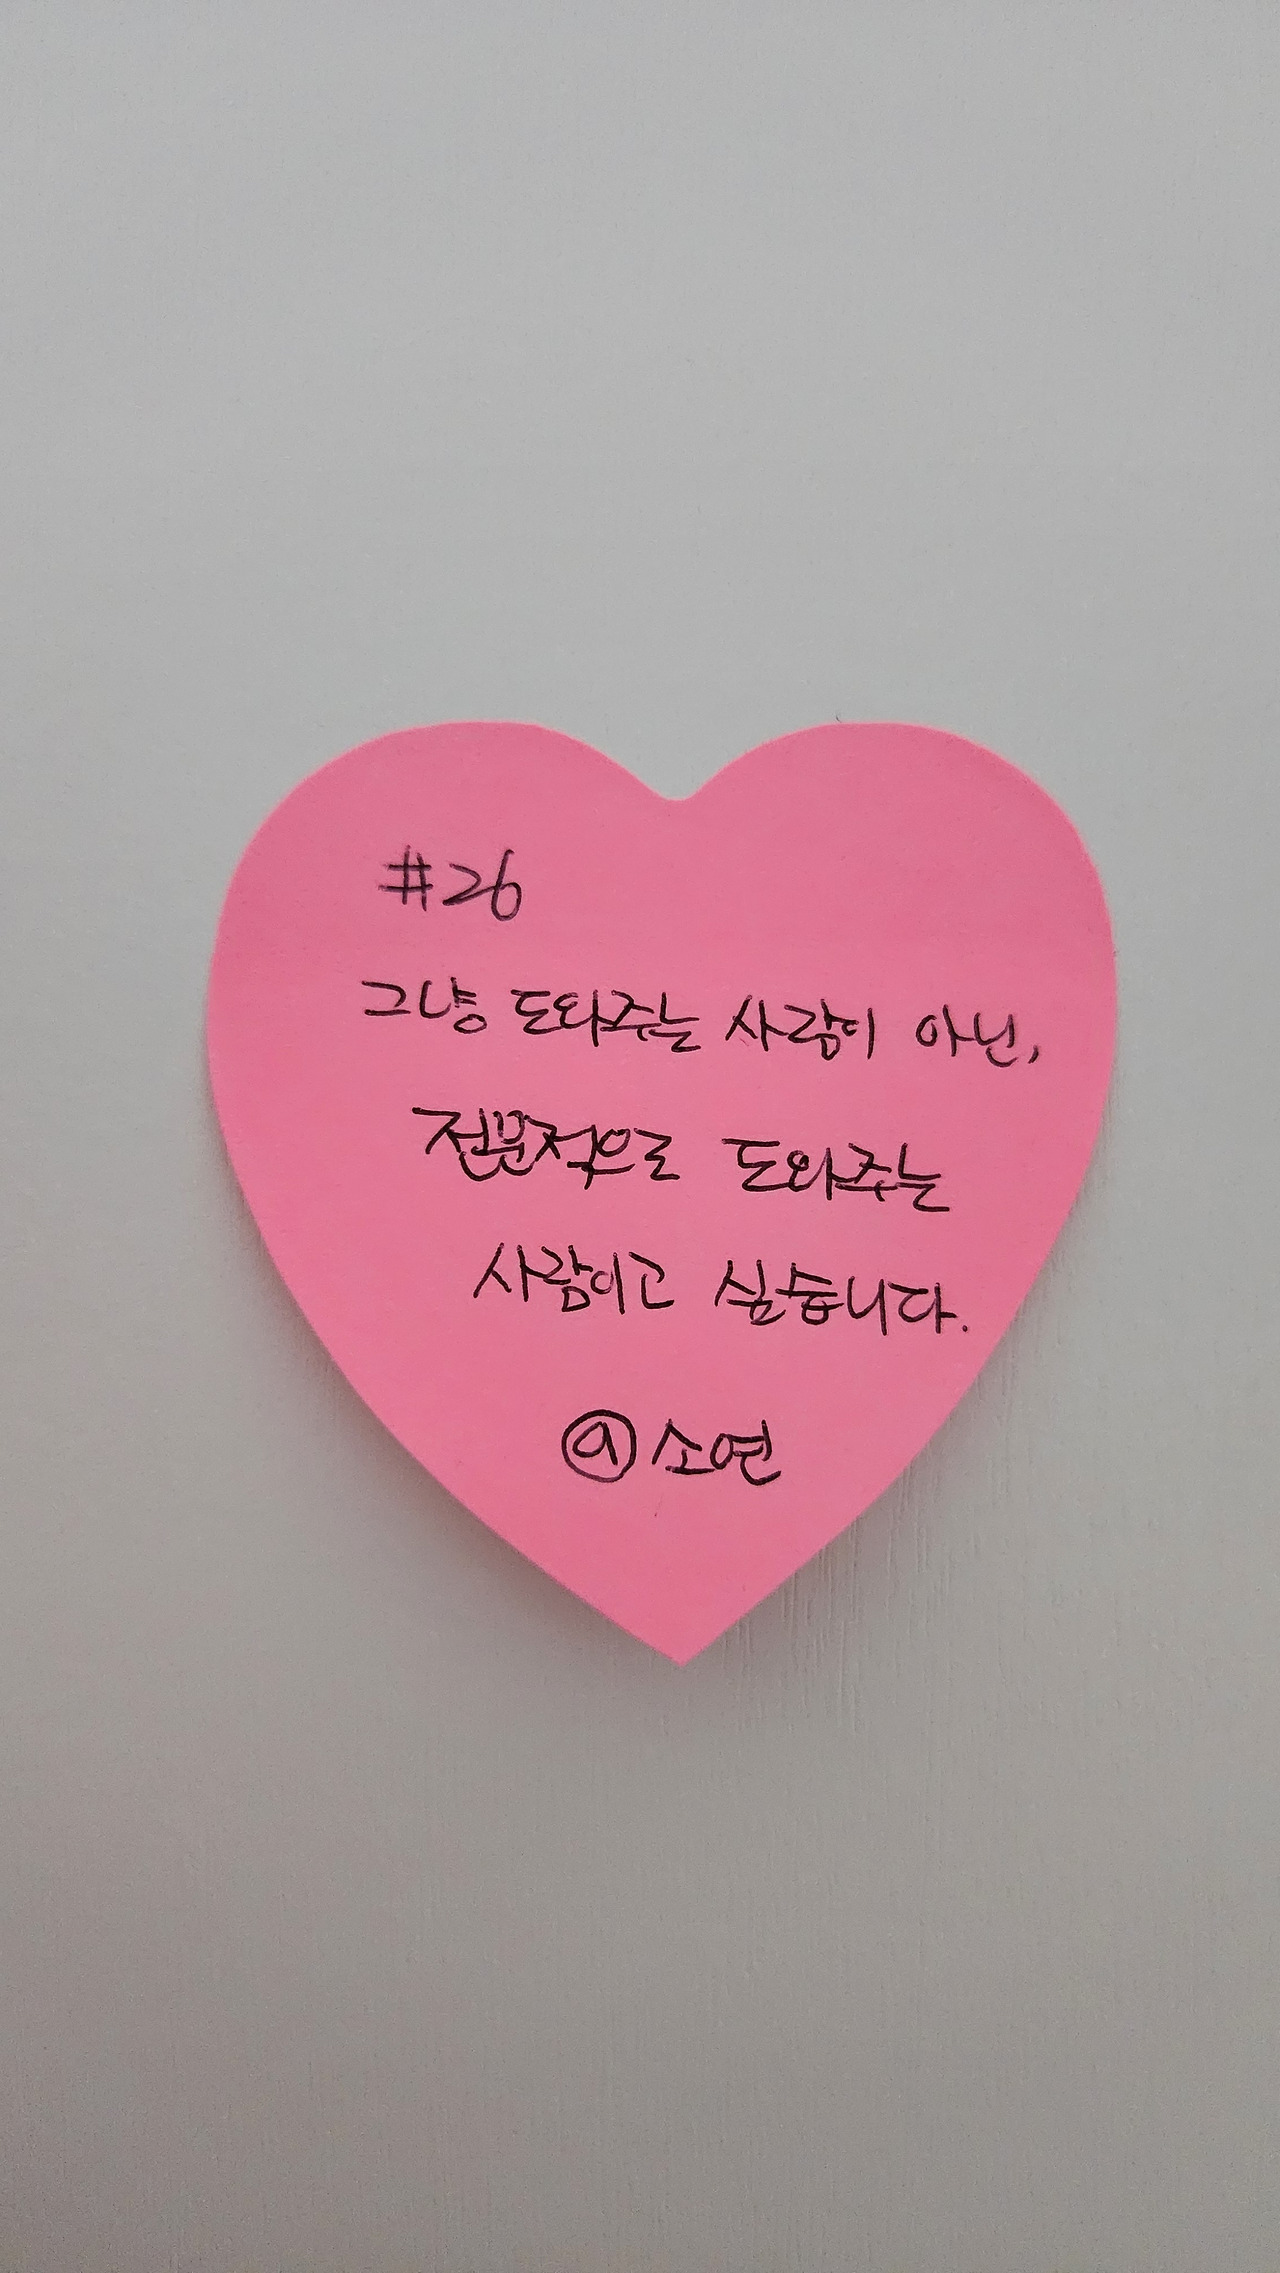 #26
그냥 도와주는 사람이 아닌,
전문적으로 도와주는
사람이고 싶습니다.
@소연